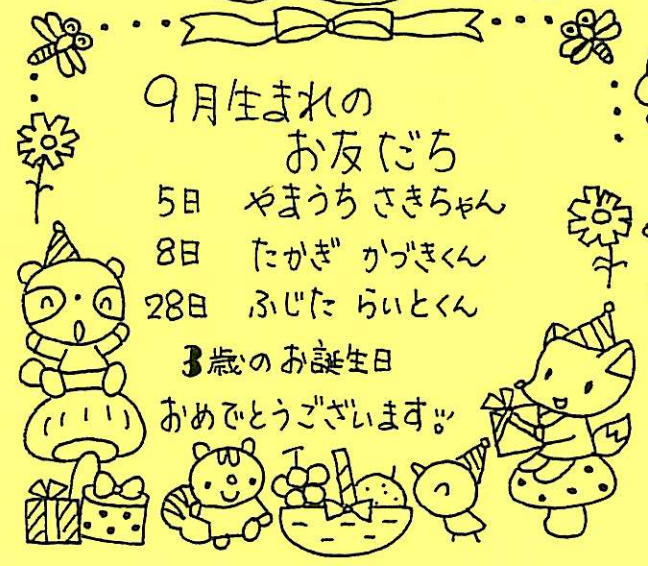 9月生まれの
お友だち
5日 やまうち さきちゃん
8日 たかぎ かづきくん
28日 ふじた らいとくん
3歳のお誕生日
おめでとうございます!!